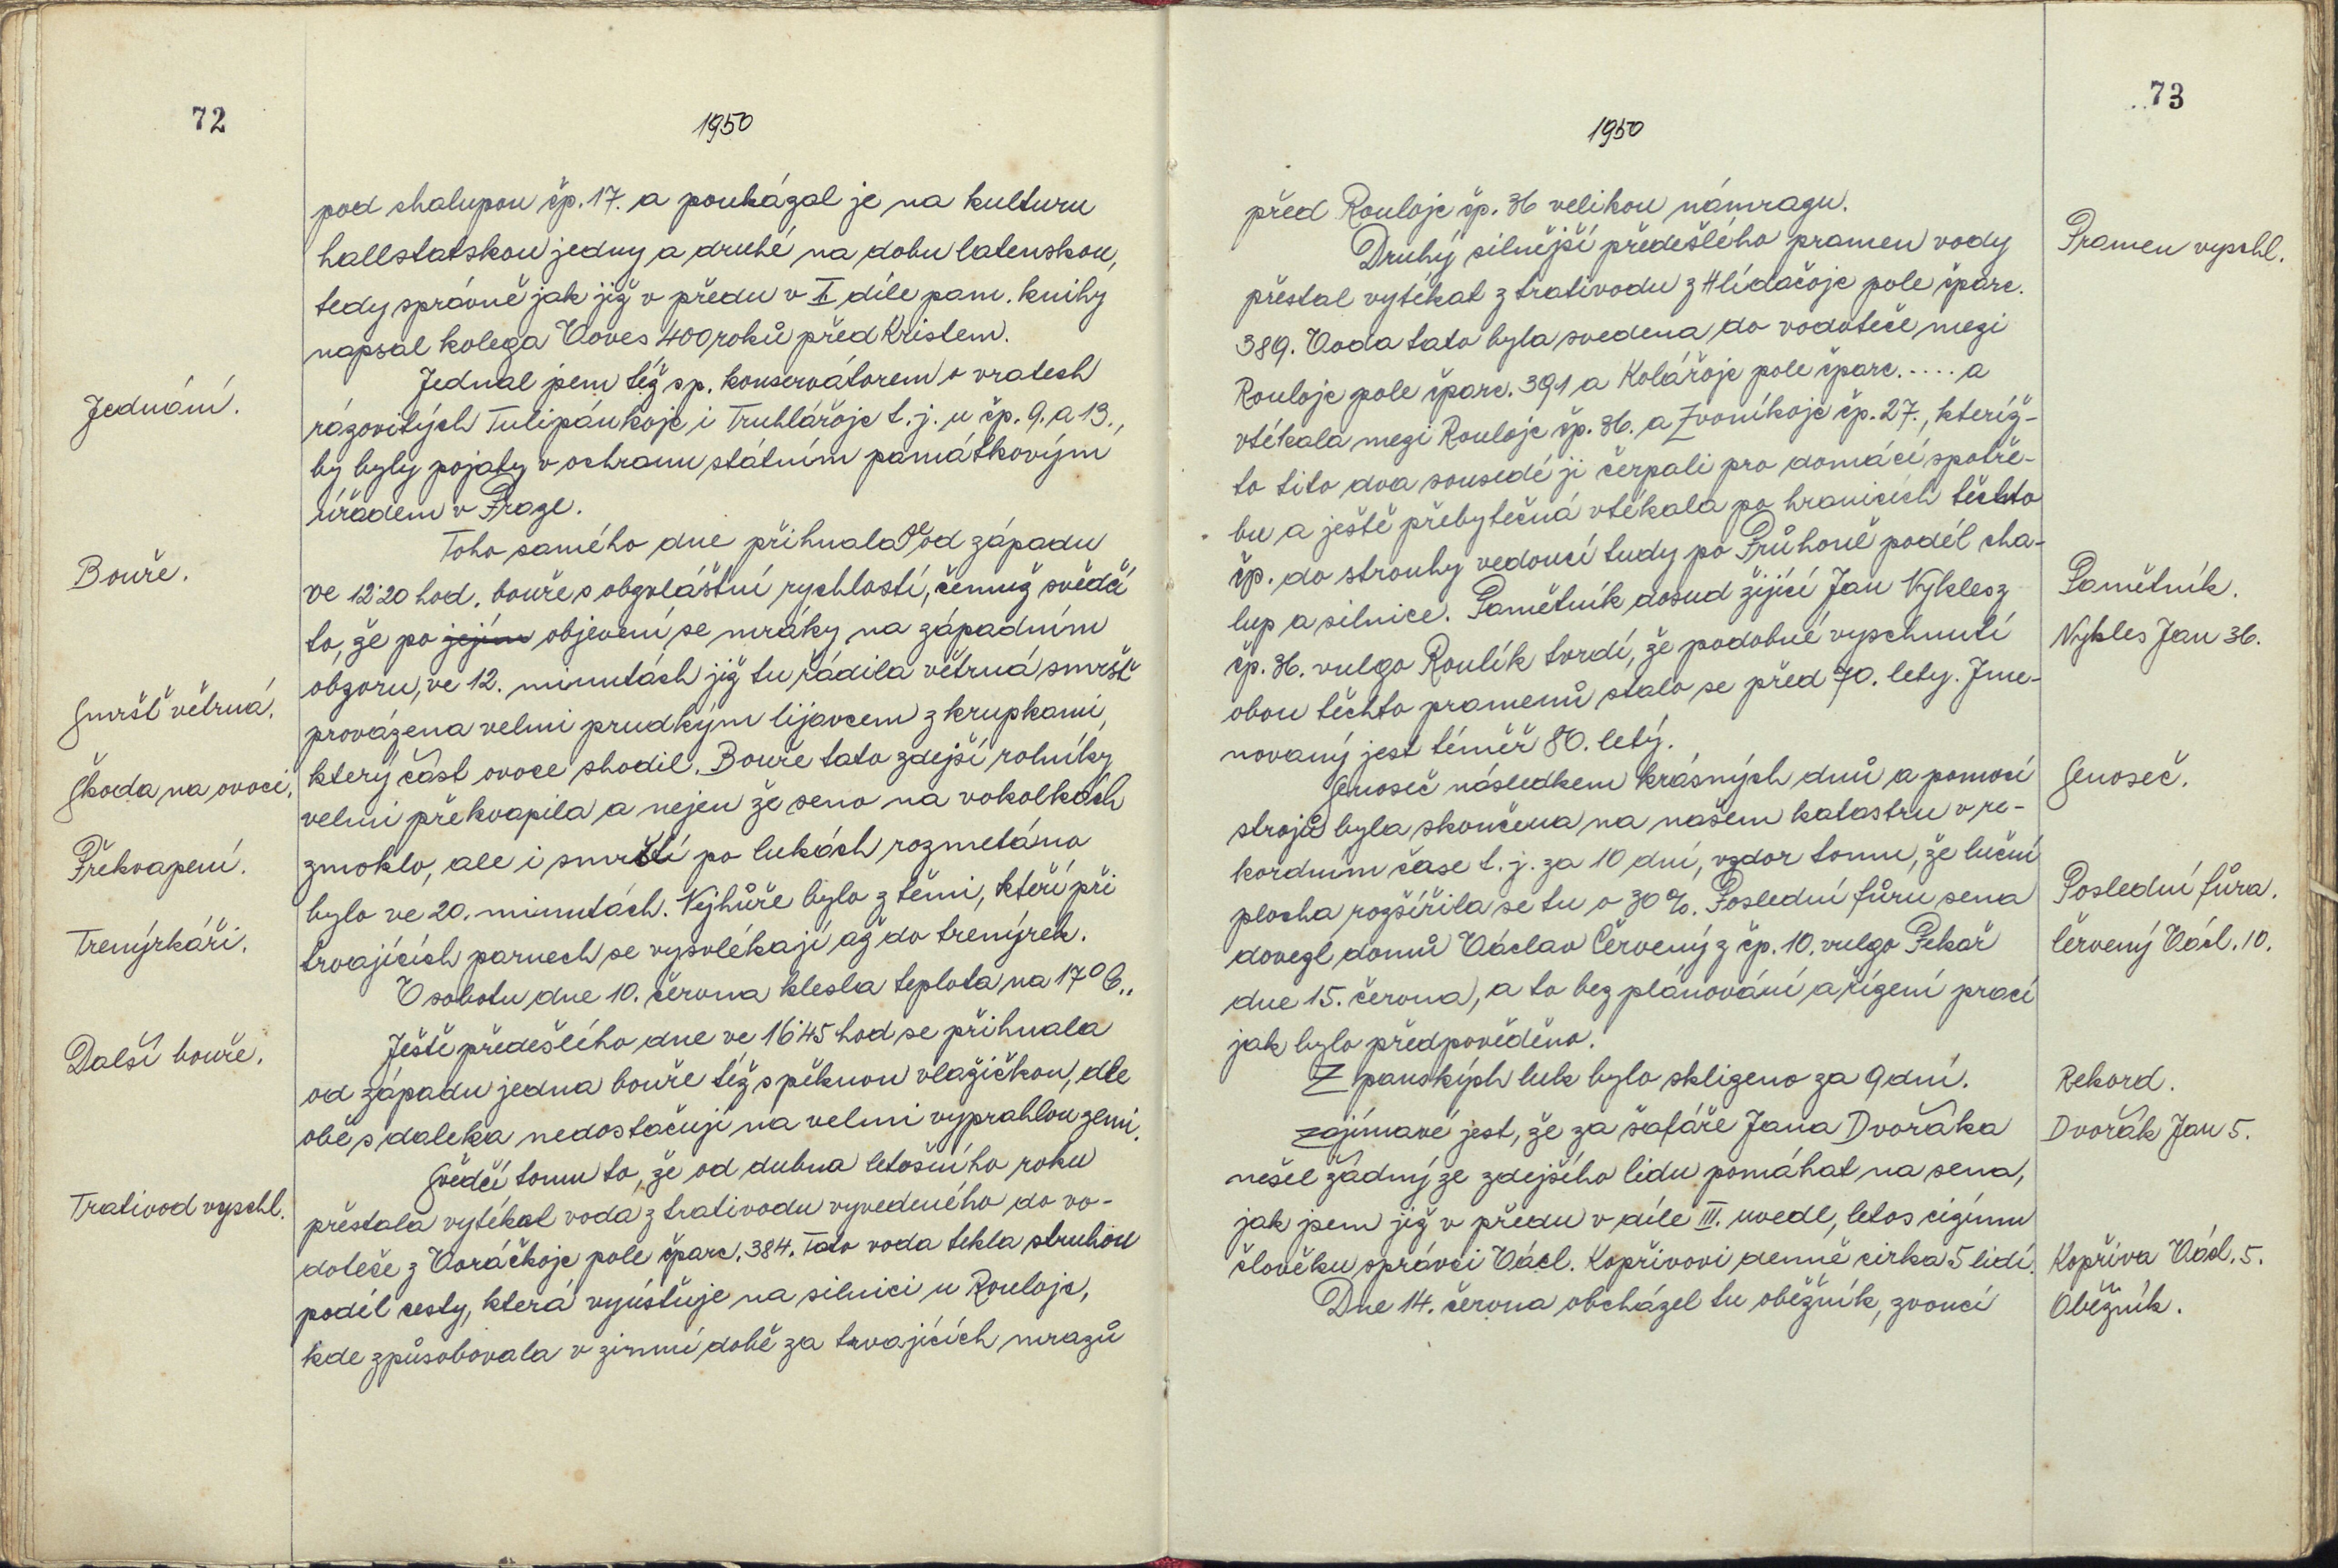 72
1950
pod chalupou čp. 17. a poukázal je na kulturu
hallstatskou jedny a druhé na dobu latenskou,
tedy správně jak již v předu v I. díle pam. knihy
napsal kolega Voves 400 roků před Kristem.
Jednání.
Jednal jsem též s p. konservátorem o vratech
rázovitých Tulipánkojc i Truhlářojc t. j. u čp. 9. a 13.,
by byly pojaty v ochranu státním památkovým
úřadem v Praze.
Bouře.
Toho samého dne přihnala se od západu
ve 12˙20 hod. bouře s obzvláštní rychlostí, čemuž svědčí
to, že po jejím objevení se mráky na západním
obzoru, ve 12. minutách již tu řádila větrná smršť
Smršť větrná.
provázena velmi prudkým lijavcem z krupkami,
Škoda na ovoci.
který část ovoce shodil. Bouře tato zdejší rolníky
velmi překvapila a nejen že seno na vokolkách
Překvapení.
zmoklo, ale i smrští po lukách rozmetáno
bylo ve 20. minutách. Nejhůře bylo z těmi, kteří při
Trenýrkáři.
trvajících parnech se vysvlékají až do trenýrek.
V sobotu dne 10. června klesla teplota na 17° C.,
Další bouře.
Ještě předešlého dne ve 16˙45 hod se přihnala
od západu jedna bouře též s pěknou vlažičkou, dle
obě s daleka nedostačují na velmi vyprahlou zemi.
Trativod vyschl.
Svědčí tomu to, že od dubna letošního roku
přestala vytékat voda z trativodu vyvedeného do vo-
doteče z Voráčkojc pole čparc. 384. Tato voda tekla struhou
podél cesty, která vyúsťuje na silnici u Roulojc,
kde způsobovala v zimní době za trvajících mrazů
73
1950
před Roulojc čp. 36 velikou námrazu.
Pramen vyschl.
Druhý silnější předešlého pramen vody
přestal vytékat z trativodu z Hlídačojc pole čparc.
389. Voda tato byla svedena do vodoteče mezi
Roulojc pole čparc. 391 a Kolářojc pole čparc. . . . . a
vtékala mezi Roulojc čp. 36. a Zvoníkojc čp. 27., kteríž-
to tito dva sousedé ji čerpali pro domácí spotře-
bu a ještě přebytečná vtékala po hranicích těchto
čp. do strouhy vedoucí tudy po Průhoně podél cha-
Pamětník.
lup a silnice. Pamětník dosud žijící Jan Nykles z
Nykles Jan 36.
čp. 36. vulgo Roulík tvrdí, že podobné vyschnutí
obou těchto pramenů stalo se před 70. lety. Jme-
novaný jest téměř 80. letý.
Senoseč.
Senoseč následkem krásných dnů a pomocí
strojů byla skončena na našem katastru v re-
kordním čase t. j. za 10 dní, vzdor tomu, že luční
Poslední fůra.
plocha rozšířila se tu o 30 %. Poslední fůru sena
Červený Václ. 10.
dovezl domů Václav Červený z čp. 10. vulgo Pekař
dne 15. června, a to bez plánování a řízení prací
jak bylo předpověděno.
Rekord.
Z panských luk bylo sklizeno za 9 dní.
Dvořák Jan 5.
Zajímavé jest, že za šafáře Jana Dvořáka
nešel žádný ze zdejšího lidu pomáhat na sena,
jak jsem již v předu v díle III. uvedl, letos cizímu
Kopřiva Václ. 5.
člověku správci Václ. Kopřivovi denně cirka 5 lidí.
Oběžník.
Dne 14. června obcházel tu oběžník, zvoucí